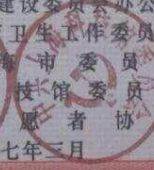 建设委员会办公
卫生工作委员
海市委员
技馆委员
愿者协
七年三月